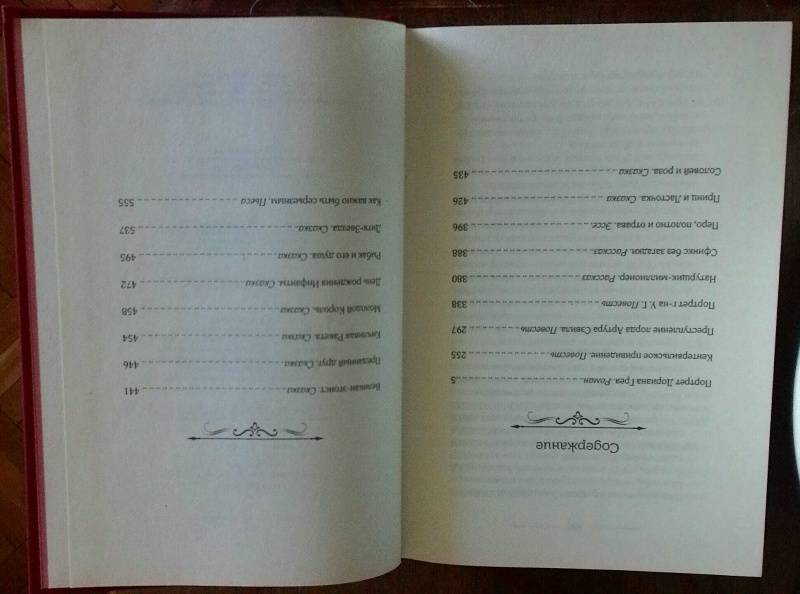 Содержание
Портрет Дориана Грея. Роман 5
Кентервильское привидение. Повесть 255
Преступление лорда Артура Сэвила. Повесть 297
Портрет г-на У. Г. Повесть 338
Натурщик-миллионер. Рассказ 380
Сфинкс без загадки. Рассказ 388
Перо, полотно и отрава. Эссе 396
Принц и Ласточка. Сказка 426
Соловей и роза. Сказка 435
Великан-эгоист. Сказка 441
Преданный друг. Сказка 446
Кичливая Ракета. Сказка 454
Молодой Король. Сказка 458
День рождения Инфанты. Сказка 472
Рыбак и его душа. Сказка 495
Дитя-Звезда. Сказка 537
Как важно быть серьезным. Пьеса 555